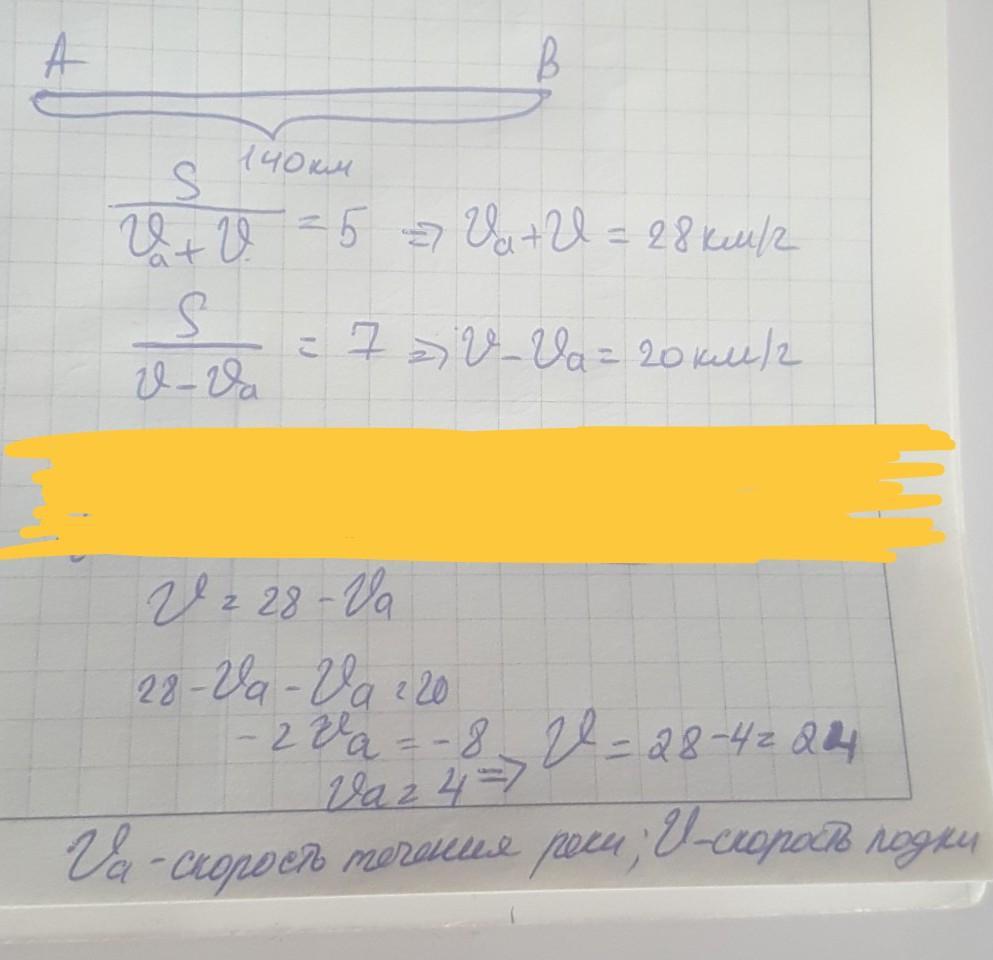 A B
140км
S/(𝒱a + 𝒱) = 5 ⇒ 𝒱a + 𝒱 = 28 км/г
S/(𝒱 − 𝒱a) = 7 ⇒ 𝒱 − 𝒱a = 20 км/г
𝒱 = 28 − 𝒱a
28 − 𝒱a − 𝒱a = 20
−2𝒱a = −8
𝒱a = 4 ⇒ 𝒱 = 28 − 4 = 24
𝒱a - скорость течения реки; 𝒱 - скорость лодки